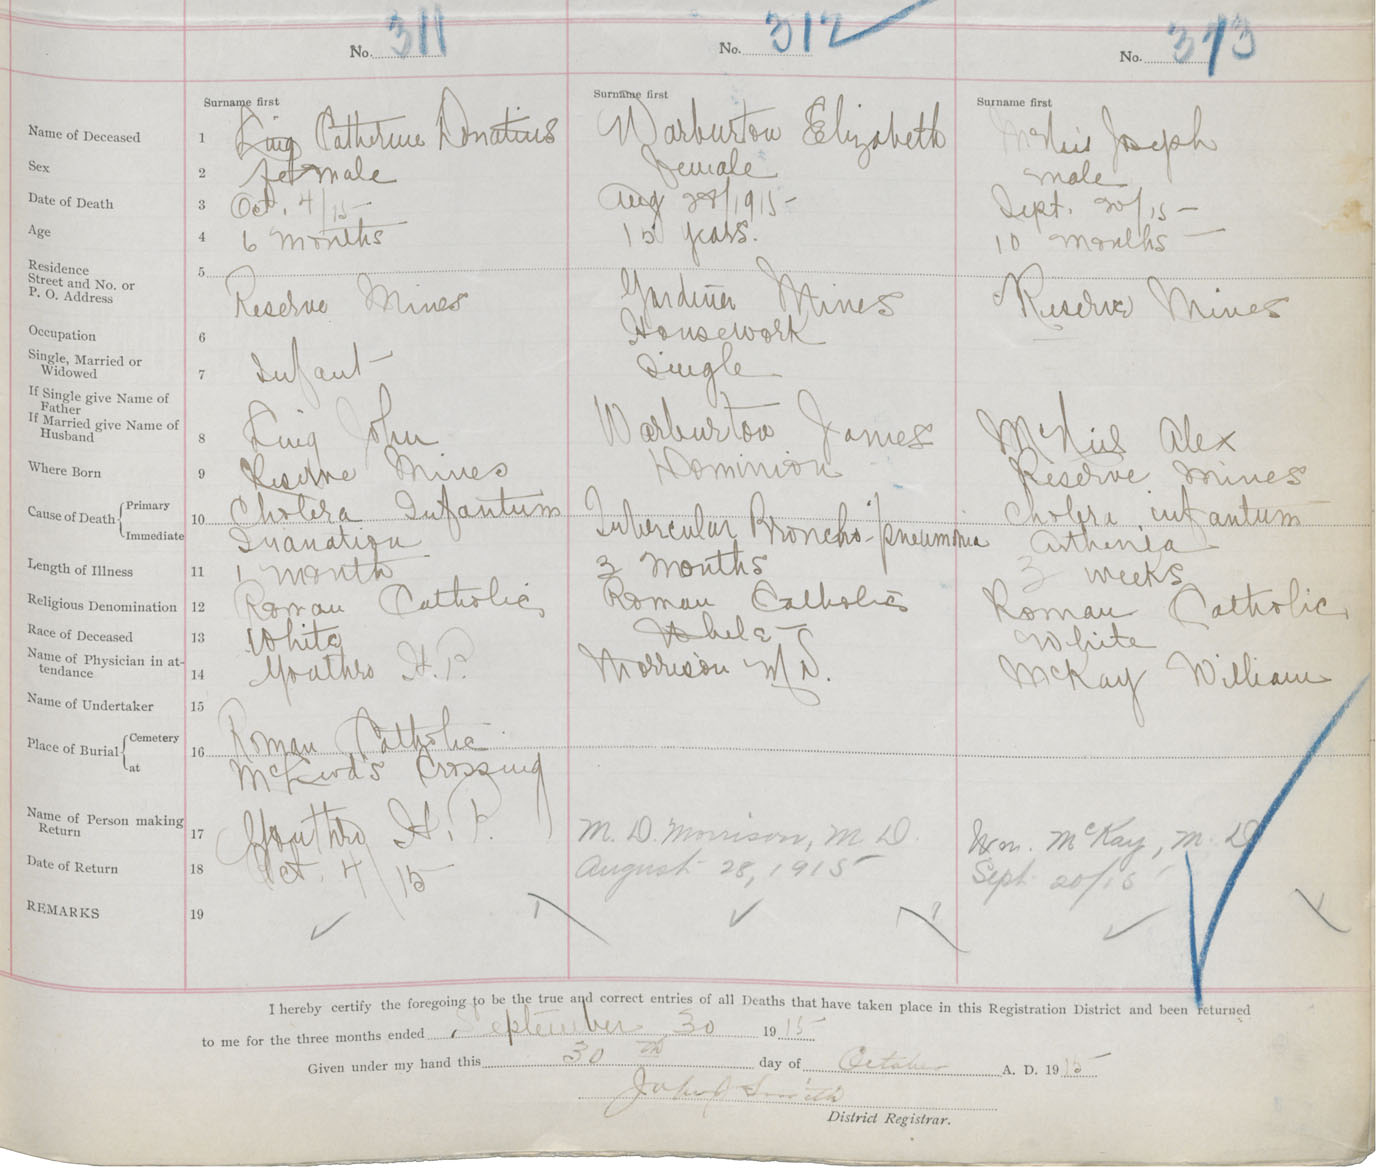 No. 311 No. 312 No. 313
Surname first Surname first Surname first
Name of Deceased 1 King Catherine Donatius Warburton Elizabeth McNeil Joseph
Sex 2 female female male
Date of Death 3 Oct. 4/15 Aug 28/1915 Sept. 20/15
Age 4 6 months 15 years. 10 months
Residence
Street and No. or
P. O. Address 5 Reserve Mines Gardiner Mines Reserve Mines
Occupation 6 Housework
Single, Married or
Widowed 7 Infant Single
If Single give Name of
Father
If Married give Name of
Husband 8 King John Warburton James McNeil Alex
Where Born 9 Reserve Mines Dominion Reserve Mines
Cause of Death { Primary 10 Cholera Infantum Tubercular Broncho-pneumonia Cholera infantum
Immediate Inanation Asthenia
Length of Illness 11 1 month 3 months 3 weeks
Religious Denomination 12 Roman Catholic Roman Catholic Roman Catholic
Race of Deceased 13 White White White
Name of Physician in at-
tendance 14 Youthro H. P. Morrison M D. McKay William
Name of Undertaker 15
Place of Burial { Cemetery 16 Roman Catholic
at McLeod's Crossing
Name of Person making
Return 17 Youthro H. P. M. D. Morrison, M D. Wm. McKay, M. D
Date of Return 18 Oct. 4/15 August 28, 1915 Sept 20/15
REMARKS 19
I hereby certify the foregoing to be the true and correct entries of all Deaths that have taken place in this Registration District and been returned
to me for the three months ended September 30 1915
Given under my hand this 30th day of October A. D. 1915
Smith
District Registrar.